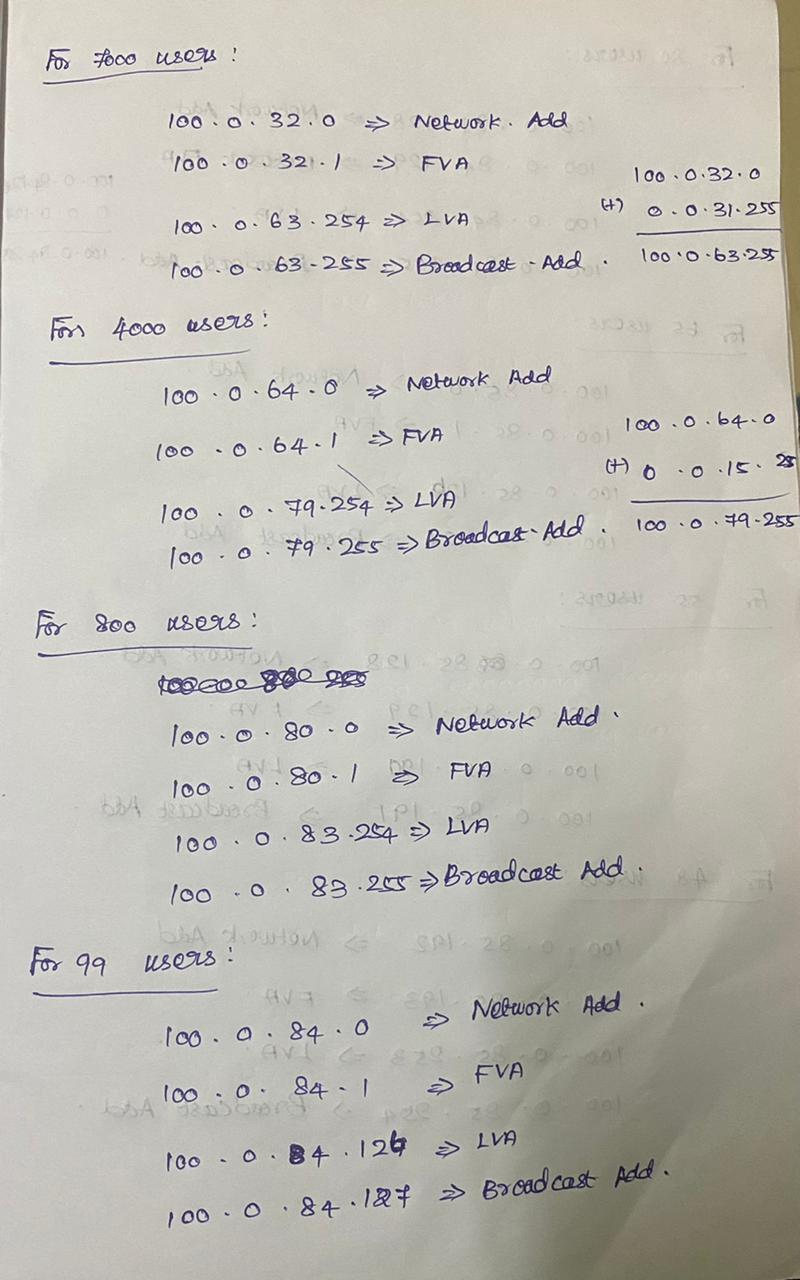 For 7000 users :
100 . 0 . 32 . 0 => Network . Add
100 . 0 . 32 . 1 => FVA
100 . 0 . 63 . 254 => LVA
100 . 0 . 63 - 255 => Broadcast - Add .
100 . 0 . 32 . 0
(+) 0 . 0 . 31 . 255
100 . 0 . 63 . 255
For 4000 users :
100 . 0 . 64 . 0 => Network Add
100 . 0 . 64 . 1 => FVA
100 . 0 . 79 . 254 => LVA
100 . 0 . 79 . 255 => Broadcast - Add .
100 . 0 . 64 . 0
(+) 0 . 0 . 15 .
100 . 0 . 79 - 255
For 800 users :
100 . 0 . 80 . 0 => Network Add .
100 . 0 . 80 . 1 => FVA
100 . 0 . 83 . 254 => LVA
100 . 0 . 83 . 255 => Broadcast Add .
For 99 users :
100 . 0 . 84 . 0 => Network Add .
100 . 0 . 84 - 1 => FVA
100 . 0 . 84 . 126 => LVA
100 . 0 . 84 . 127 => Broadcast Add .